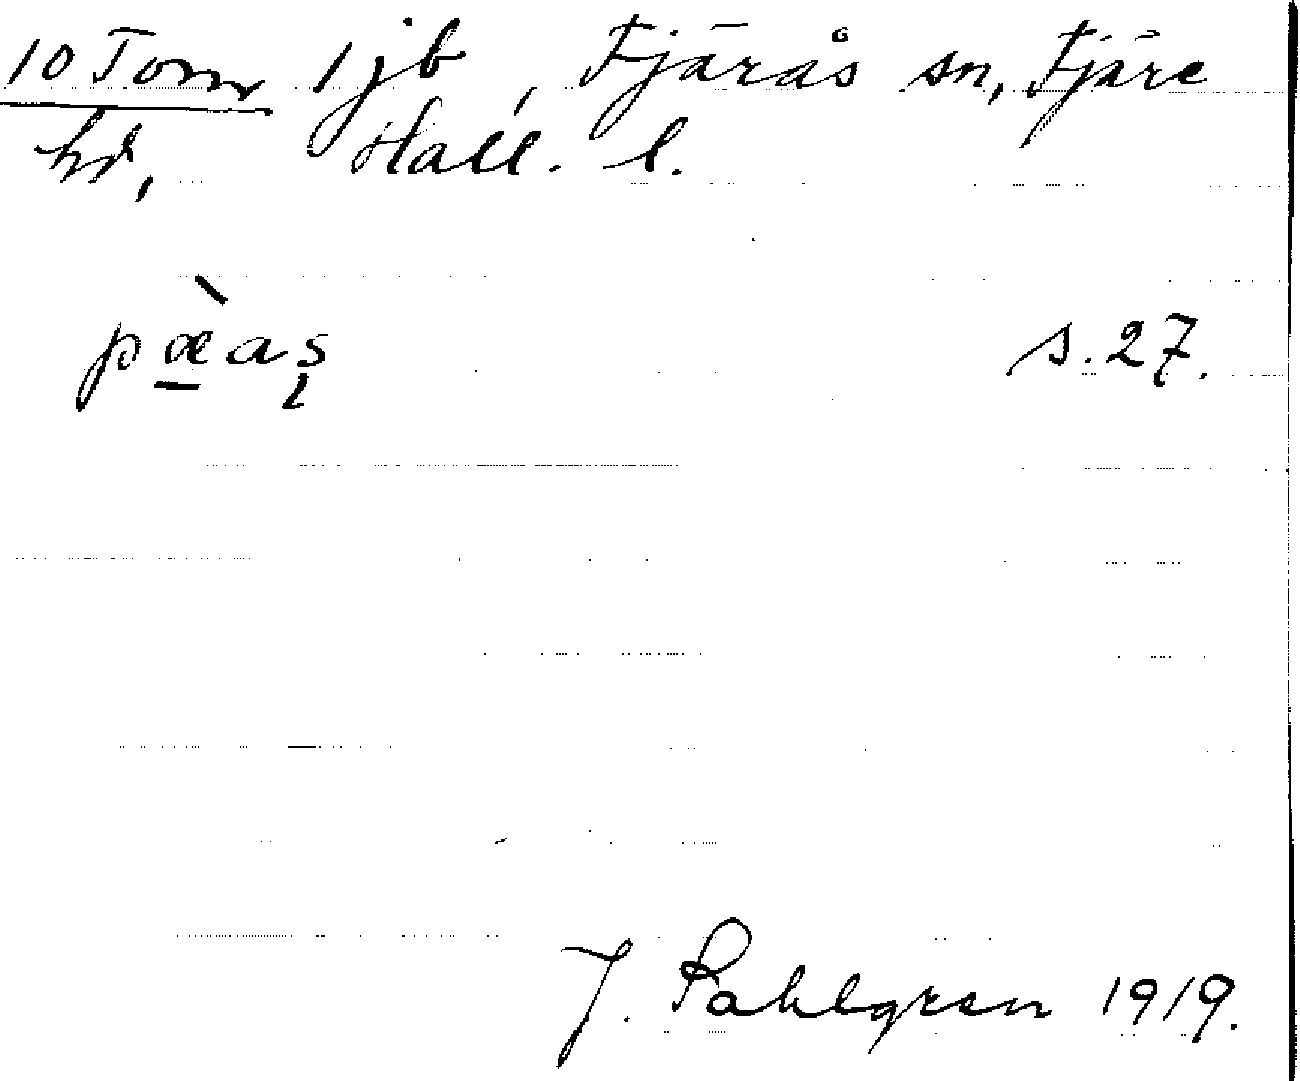 10 Tom 1 jb, Fjärås sn, Fjäre
hd, Hall. l.
pæ̱̀as̩ s. 27.
J. Sahlgren 1919.